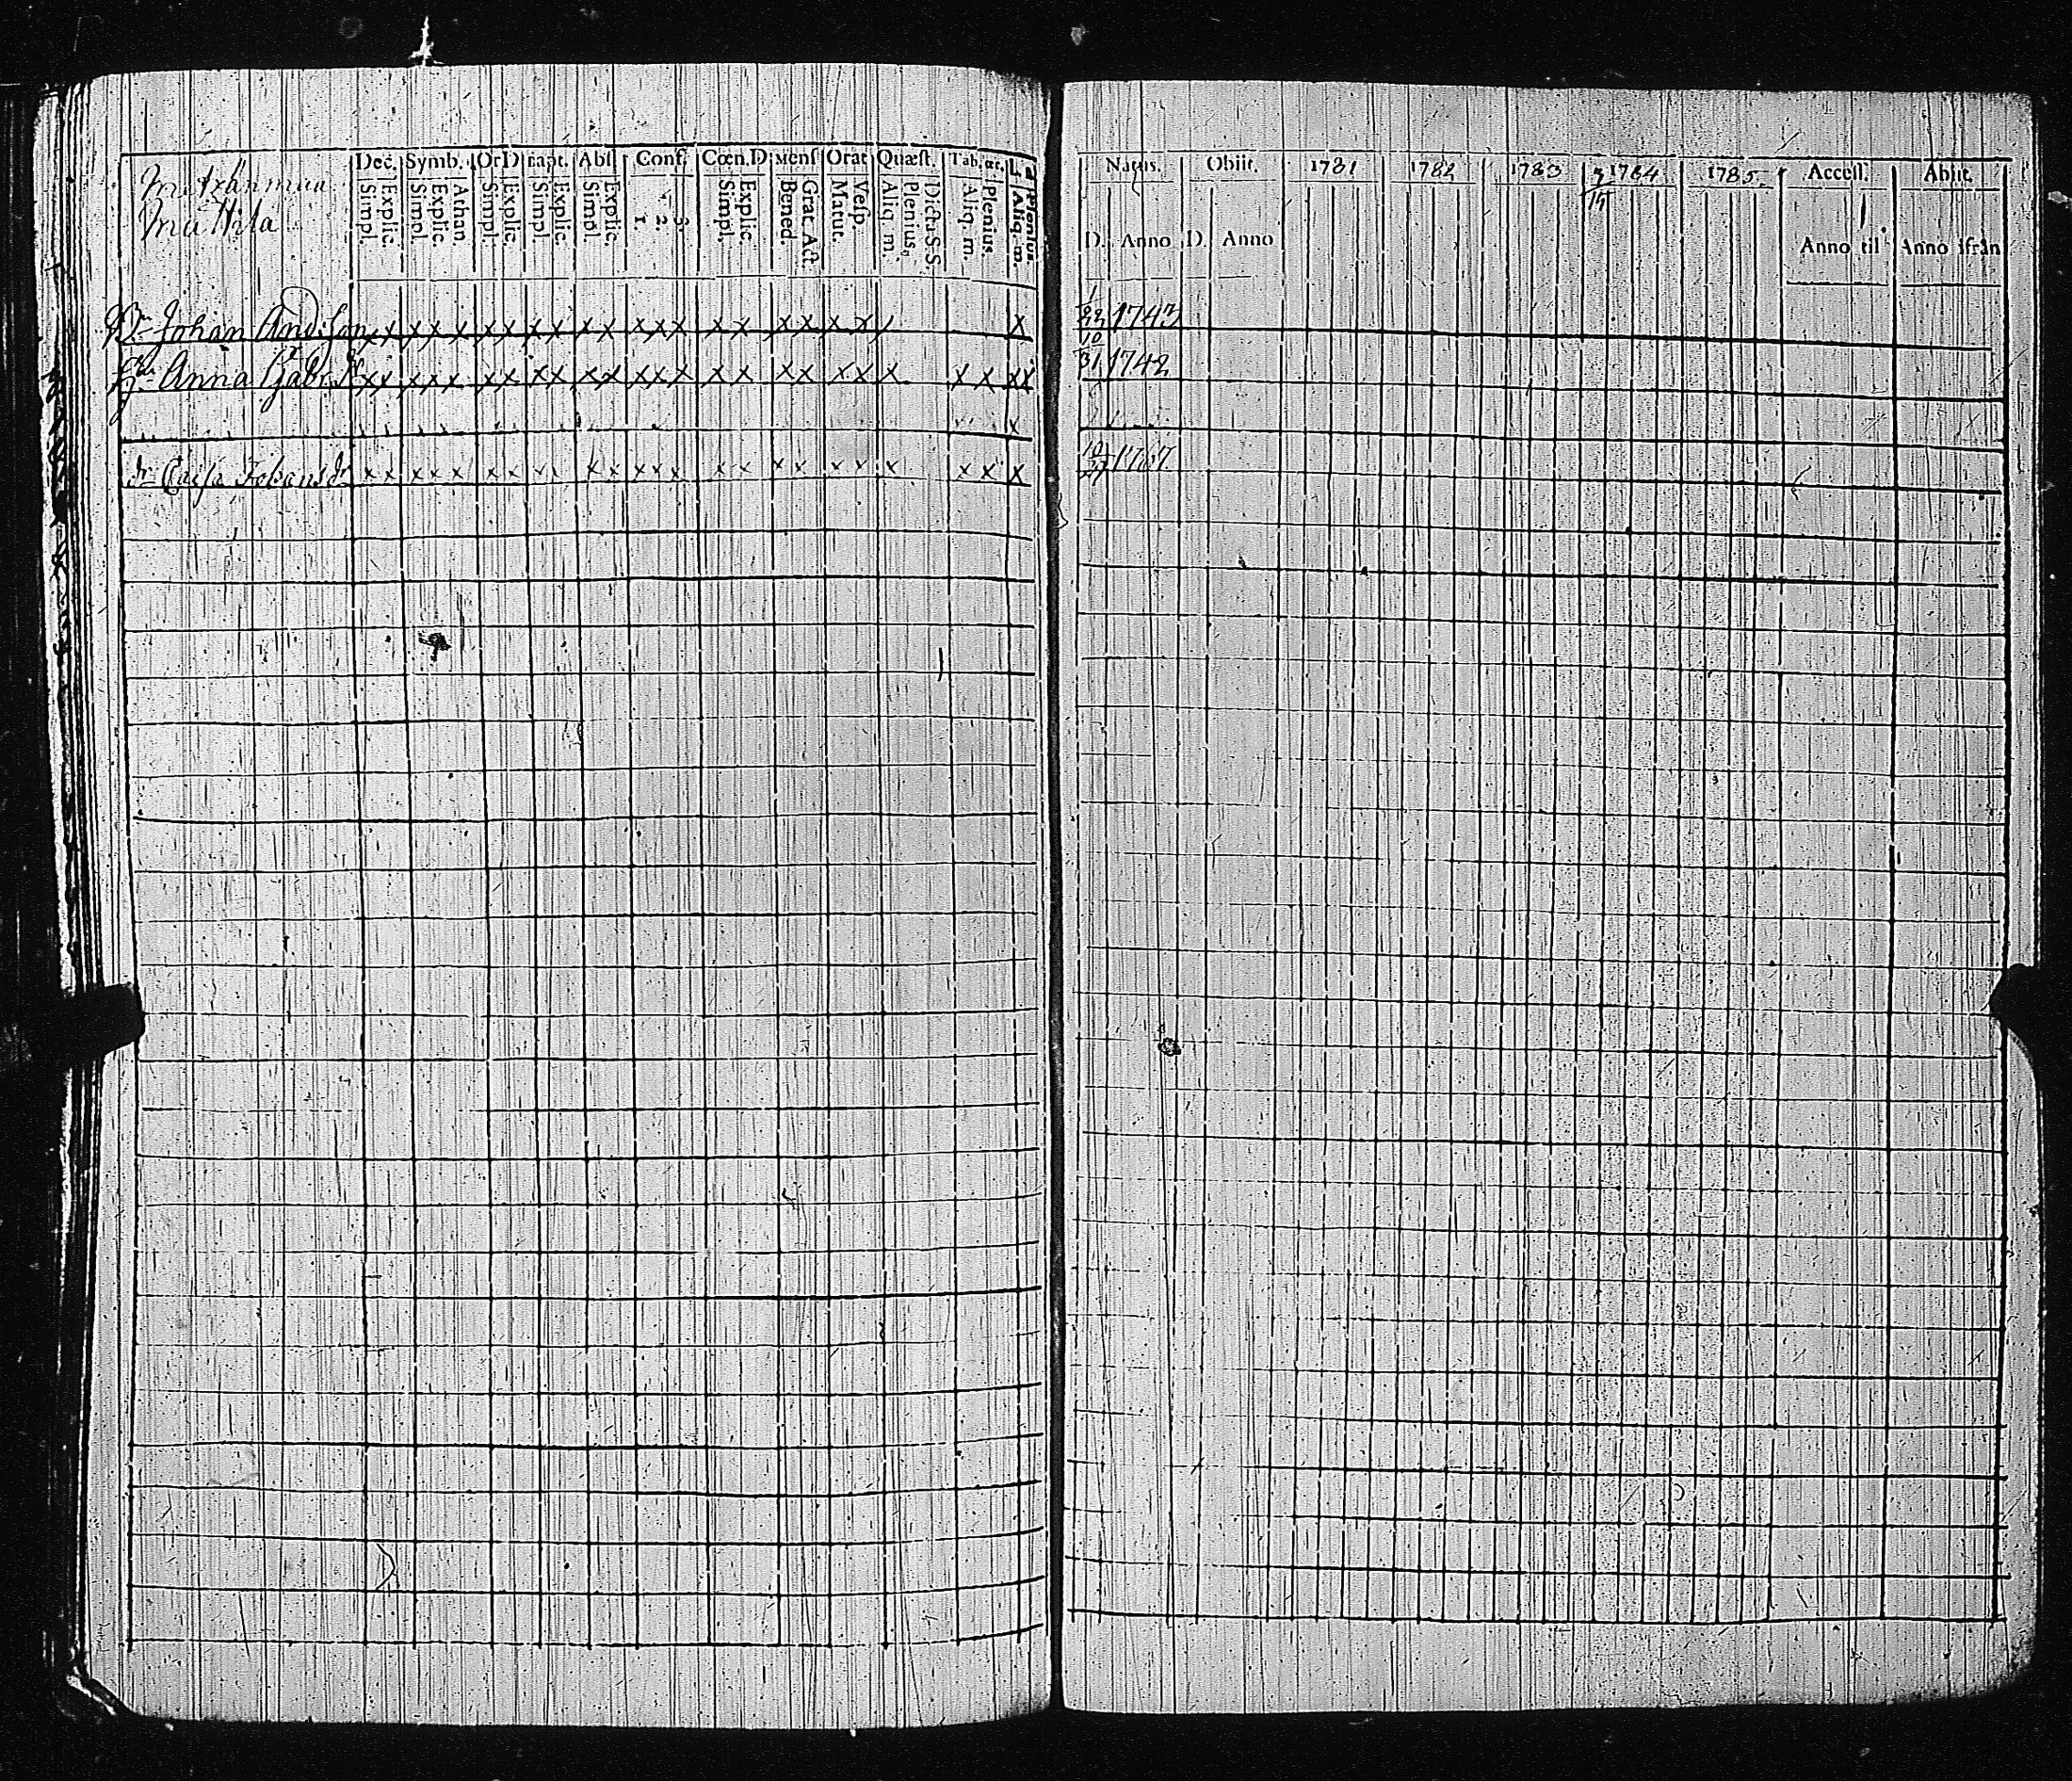 Dec. Symb. Or D Bapt. Abs Conf. Cœn. D Mens Orat Quæst. Tab. œc.
Mattila
Simpl. Explic. Simpl. Explic. Athan. Simpl. Explic. Simpl. Explic. Simpl. Explic. 1. 2. 3. Simpl. Explic. Bened. Grat. Act. Matut. Vesp. Aliq. m. Plenius. Dicta S. S. Aliq. m. Plenius. Aliq. m. Plenius.
Johan And:son x x x x x x x x x x x x x x x x x x x x x
Anna Gabr. x x x x x x x x x x x x x x x x x x x x x x x x x
x
Caisa Johansdr x x x x x x x x x x x x x x x x x x x x x x x x
Natus. Obiit. 1781 1782 1783 1784 1785. Access. Abiit.
D. Anno D. Anno Anno til Anno ifrån
1/22 1743
10/31 1742
1767